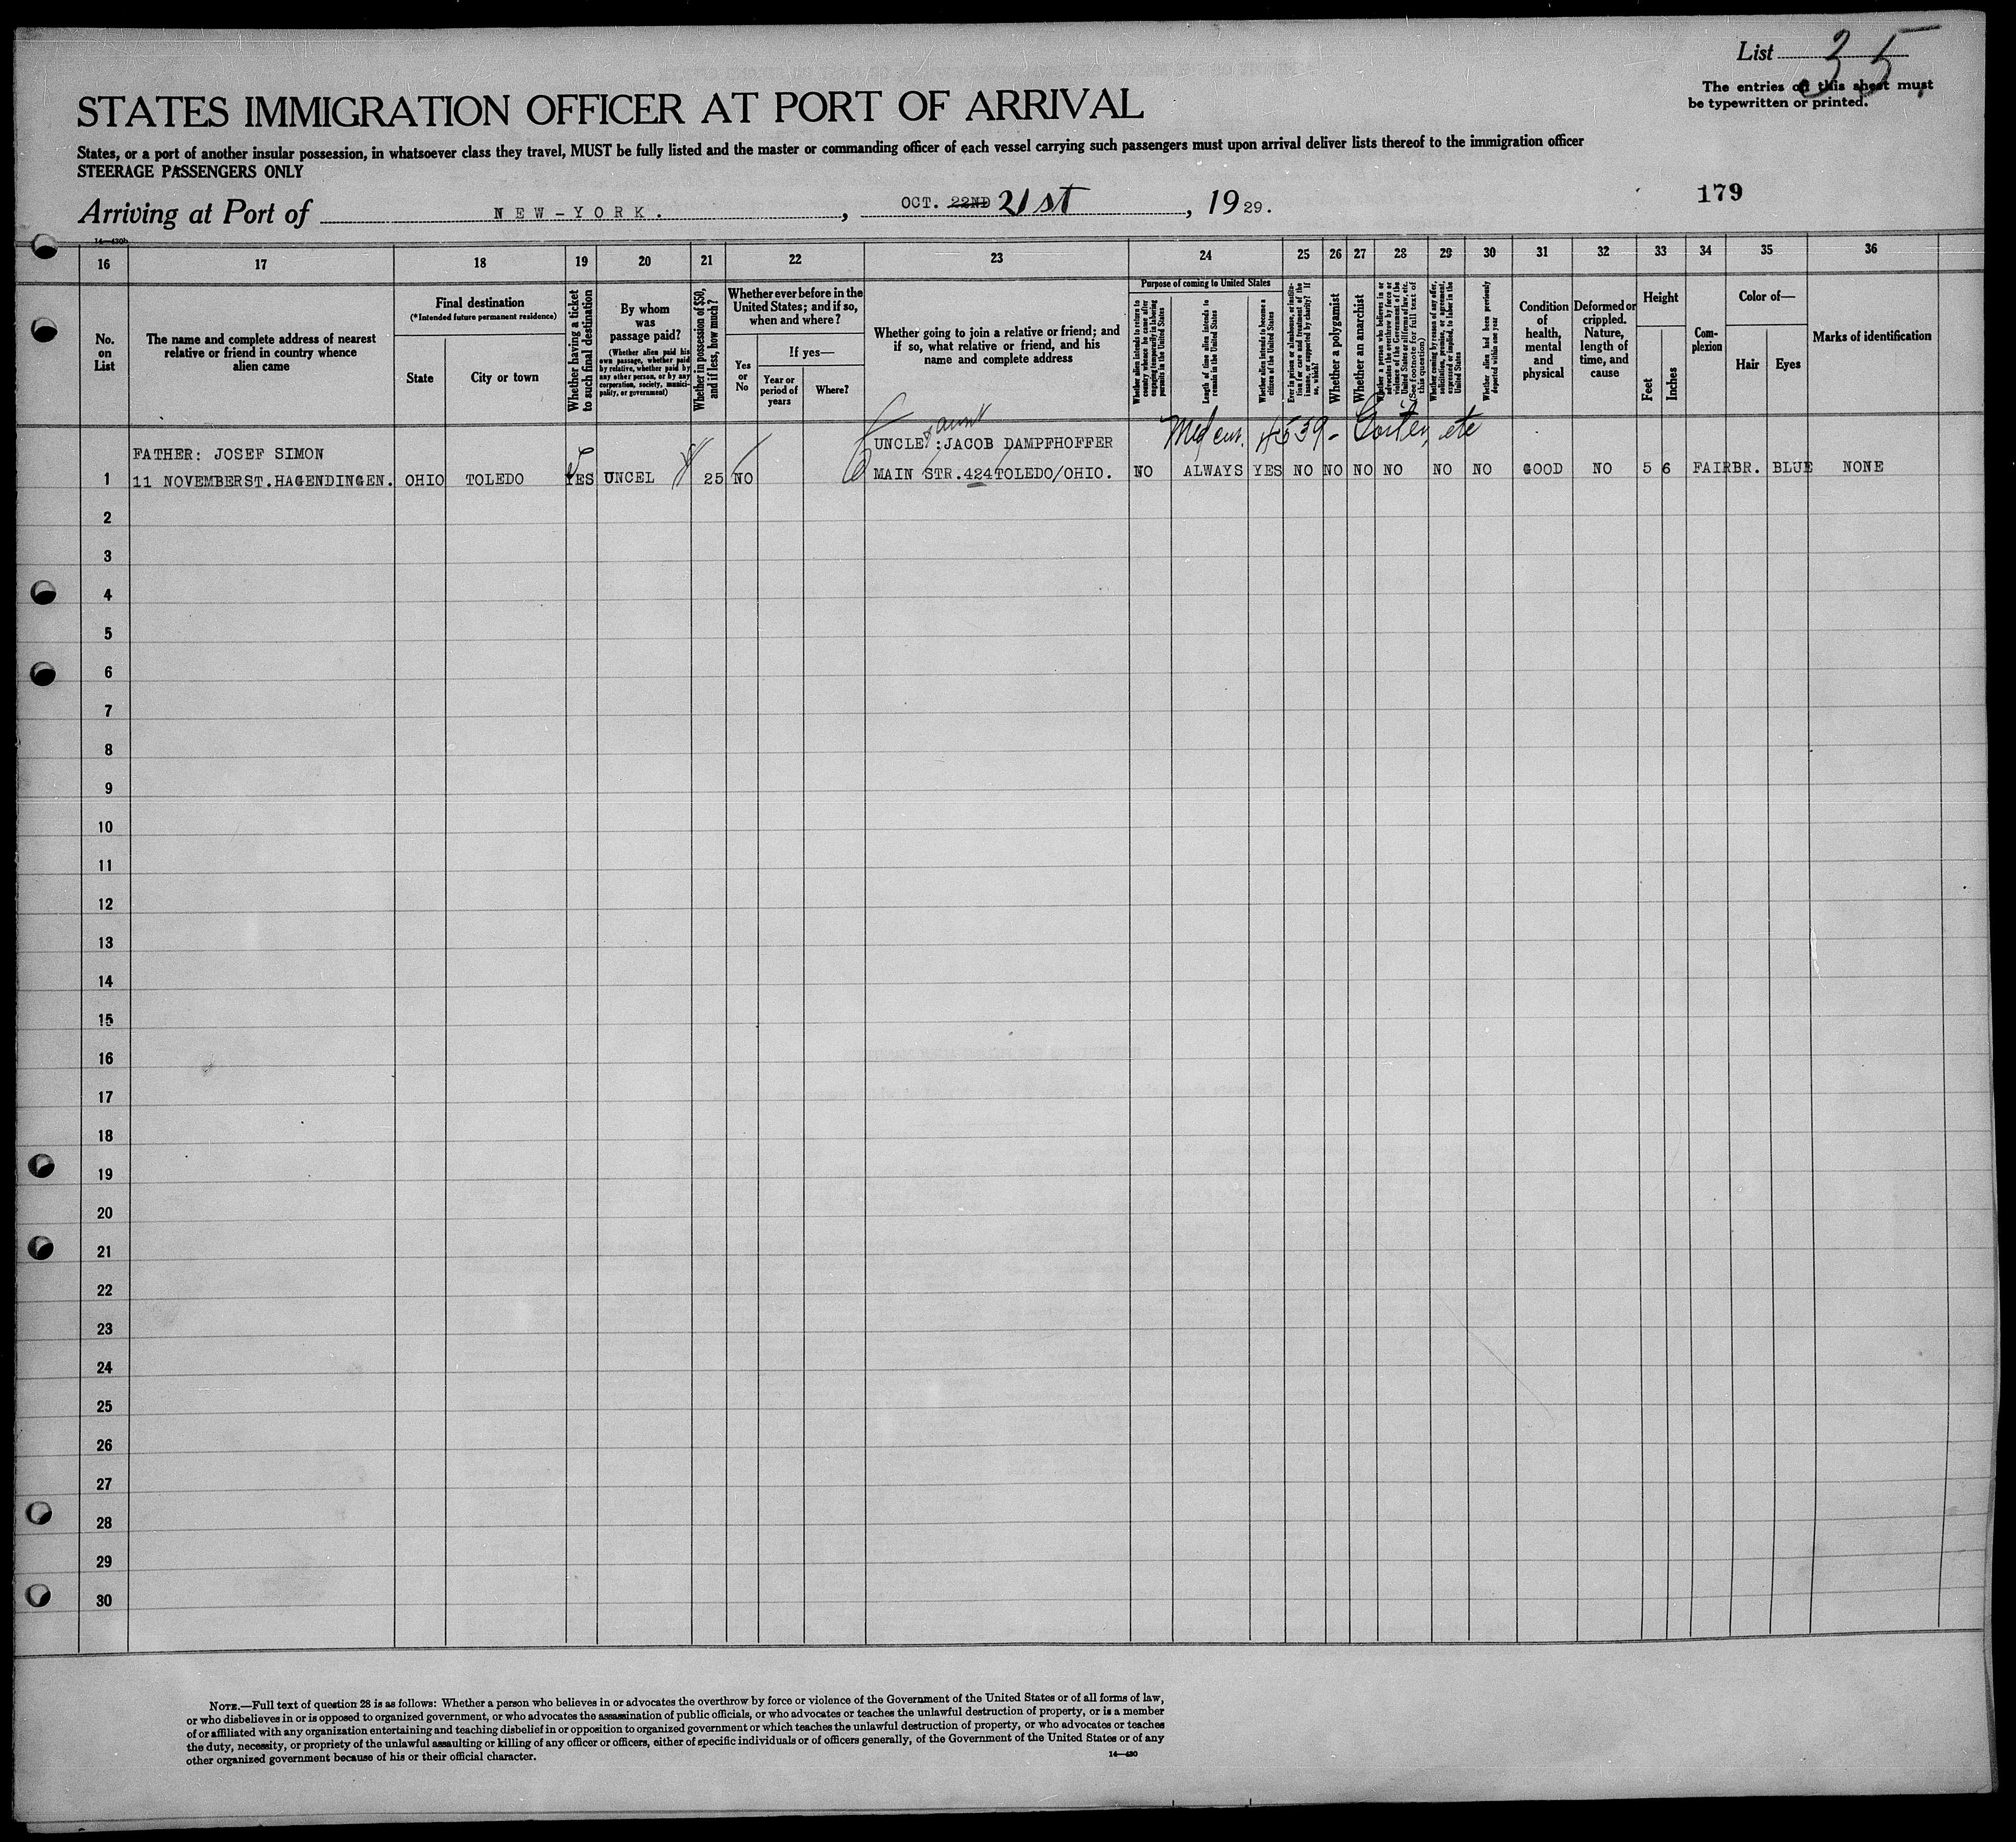 List 35
The entries on this sheet must
be typewritten or printed.
STATES IMMIGRATION OFFICER AT PORT OF ARRIVAL
States, or a port of another insular possession, in whatsoever class they travel, MUST be fully listed and the master or commanding officer of each vessel carrying such passengers must upon arrival deliver lists thereof to the immigration officer
STEERAGE PASSENGERS ONLY
Arriving at Port of NEW-YORK. , OCT. 22ND 21st , 1929.
179
14—430b
16 17 18 19 20 21 22 23 24 25 26 27 28 29 30 31 32 33 34 35 36
No.
on
List
The name and complete address of nearest
relative or friend in country whence
alien came
Final destination
(*Intended future permanent residence)
State
City or town
Whether having a ticket
to such final destination
By whom
was
passage paid?
(Whether alien paid his
own passage, whether paid
by relative, whether paid by
any other person, or by any
corporation, society, munici-
pality, or government)
Whether in possession of $50,
and if less, how much?
Whether ever before in the
United States; and if so,
when and where?
Yes
or
No
If yes—
Year or
period of
years
Where?
Whether going to join a relative or friend; and
if so, what relative or friend, and his
name and complete address
Purpose of coming to United States
Whether alien intends to return to
country whence he came after
engaging temporarily in laboring
pursuits in the United States
Length of time alien intends to
remain in the United States
Whether alien intends to become a
citizen of the United States
Ever in prison or almshouse, or institu-
tion for care and treatment of the
insane, or supported by charity? If
so, which?
Whether a polygamist
Whether an anarchist
Whether a person who believes in or
advocates the overthrow by force or
violence of the Government of the
United States or all forms of law, etc.
(See footnote for full text of
this question)
Whether coming by reason of any offer,
solicitation, promise, or agreement,
expressed or implied, to labor in the
United States
Whether alien had been previously
deported within one year
Condition
of
health,
mental
and
physical
Deformed or
crippled.
Nature,
length of
time, and
cause
Height
Feet
Inches
Com-
plexion
Color of—
Hair
Eyes
Marks of identification
& aunt
Med cer. #539 - Goiter, etc
FATHER: JOSEF SIMON UNCLE: JACOB DAMPFHOFFER
1 11 NOVEMBERST.HAGENDINGEN. OHIO TOLEDO YES UNCEL 25 NO MAIN STR.424TOLEDO/OHIO. NO ALWAYS YES NO NO NO NO NO NO GOOD NO 5 6 FAIR BR. BLUE NONE
2
3
4
5
6
7
8
9
10
11
12
13
14
15
16
17
18
19
20
21
22
23
24
25
26
27
28
29
30
NOTE.—Full text of question 28 is as follows: Whether a person who believes in or advocates the overthrow by force or violence of the Government of the United States or of all forms of law,
or who disbelieves in or is opposed to organized government, or who advocates the assassination of public officials, or who advocates or teaches the unlawful destruction of property, or is a member
of or affiliated with any organization entertaining and teaching disbelief in or opposition to organized government or which teaches the unlawful destruction of property, or who advocates or teaches
the duty, necessity, or propriety of the unlawful assaulting or killing of any officer or officers, either of specific individuals or of officers generally, of the Government of the United States or of any
other organized government because of his or their official character.
14—430